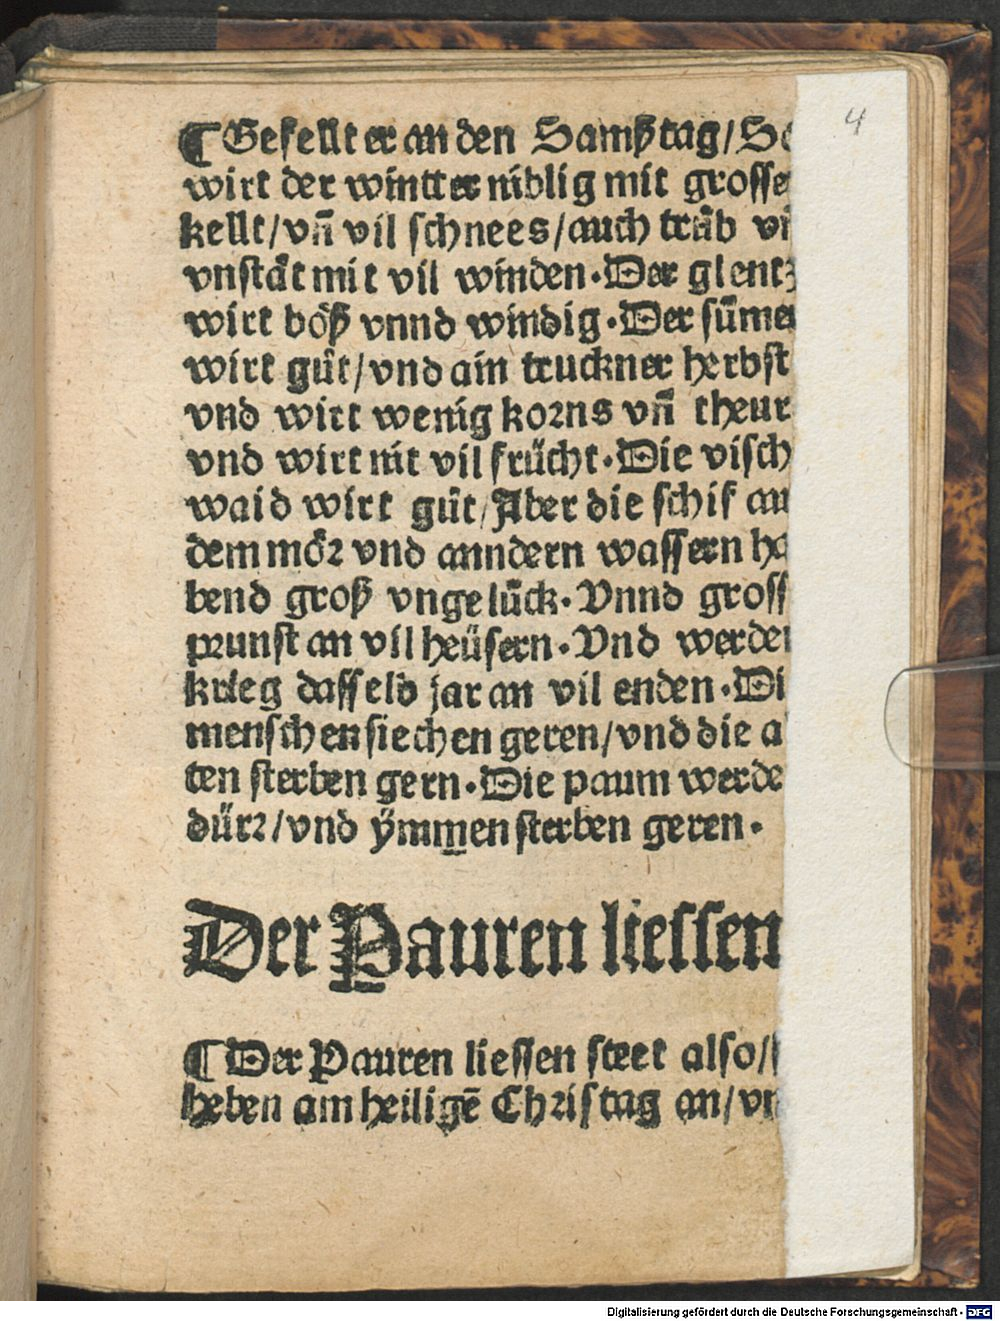 ¶ Gefellt er an den Samßtag/So
wirt der wintter niblig mit grosse
kellt/vñ vil schnees/auch trüb vñ
vnstät mit vil winden. Der glentz
wirt böß vnnd windig. Der sūmer
wirt gůt/vnd ain truckner herbst
vnd wirt wenig korns vñ theur
vnd wirt nit vil frücht. Die visch
waid wirt gůt/Aber die schif au
dem mör vnd anndern wassern ha
bend groß vngelück. Vnnd gross
prunst an vil heüsern. Vnd werden
krieg dasselb jar an vil enden. Di
menschen siechen geren/vnd die al
ten sterben gern. Die paum werde
dürr/vnd ÿmmen sterben geren.
Der Pauren liessen
¶ Der Pauren liessen steet also/
heben am heiligē Christag an/vn
4
Digitalisierung gefördert durch die Deutsche Forschungsgemeinschaft - DFG